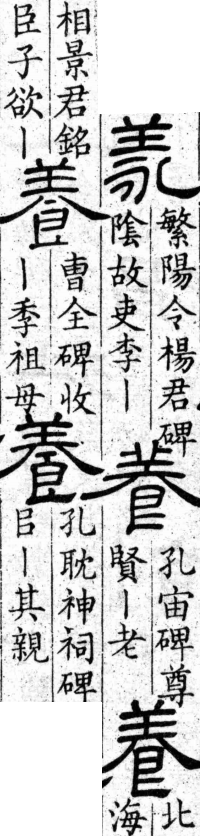 羕
繁陽令楊君碑
隂故吏李丨
養
孔宙碑尊
賢丨老
養
北
海
相景君銘
臣子欲丨
養
曹全碑收
丨季祖母
養
孔耽神祠碑
㠯丨其親